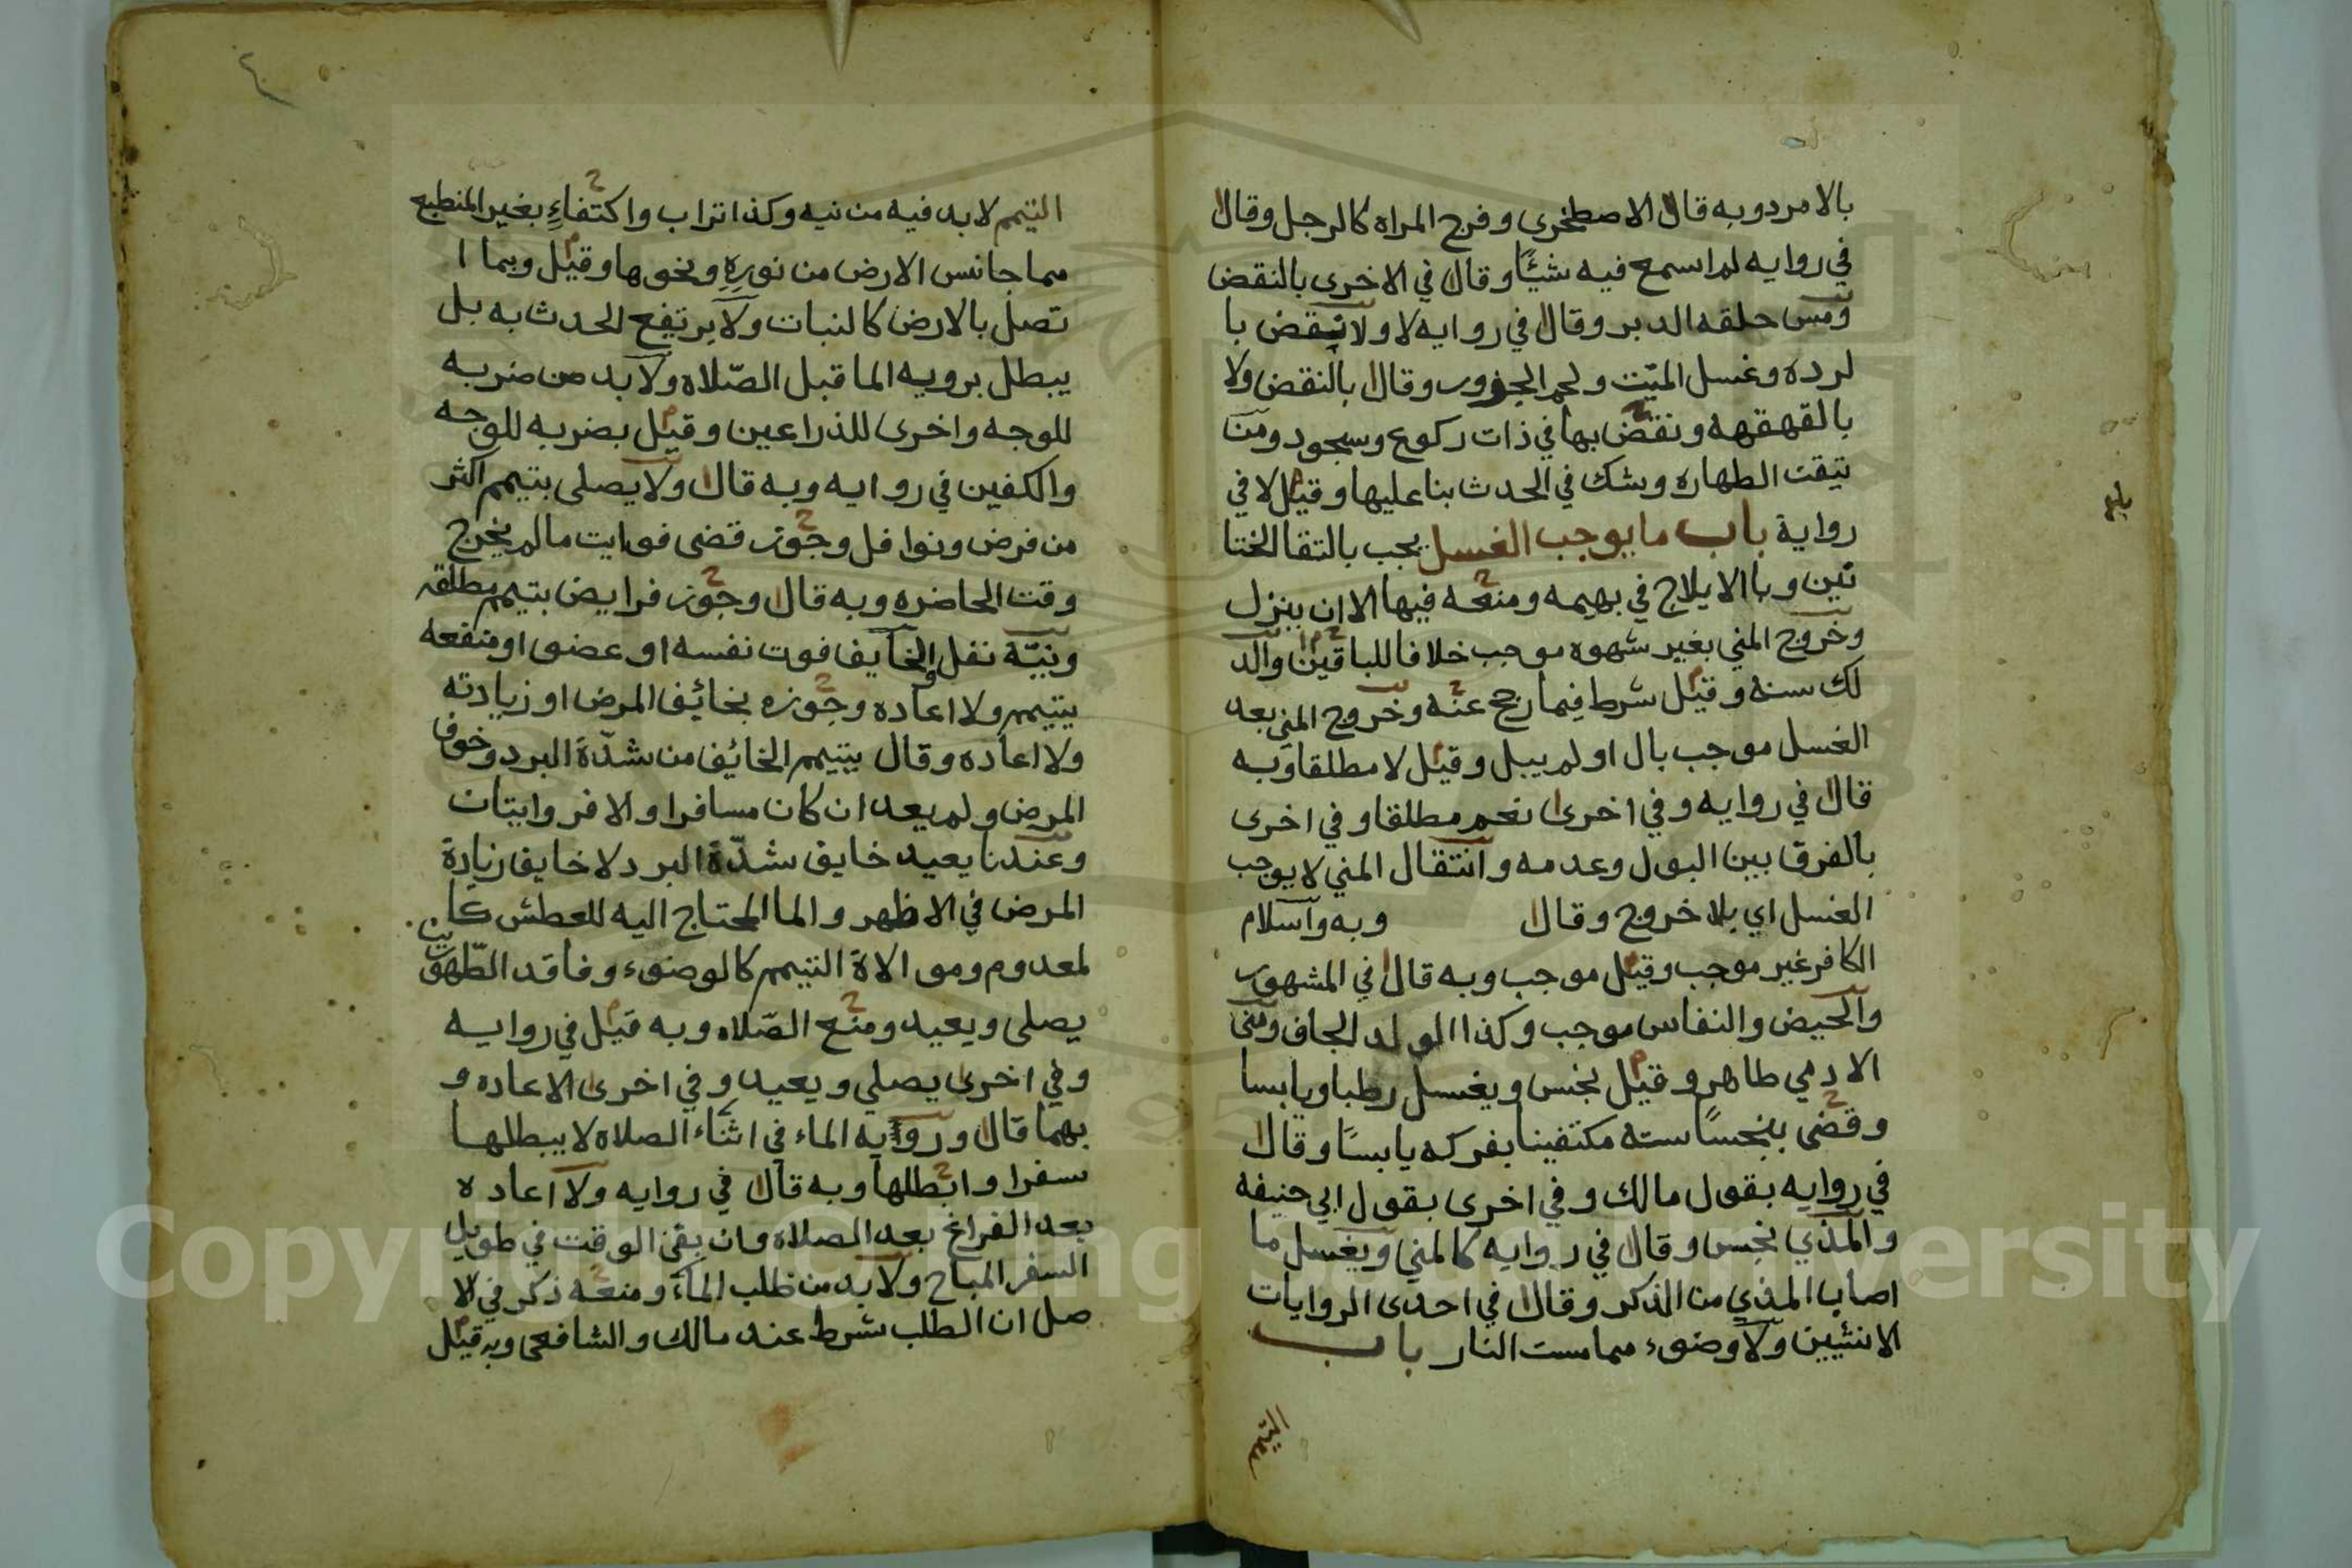 بالامرد وبه قال الاصطخرى وفرج المراه كالرجل وقال
في روايه لم اسمع فيه شيًا وقال في الاخرى بالنقض
ومس حلقه الدبر وقال في روايه لا ولا نقض با
لرده وغسل الميّت ولحم الجزور وقال بالنقض ولا
بالقهقهه ونقض بها في ذات ركوع وسجود ومن
تيقن الطهاره وشك في الحدث بنا عليها وقيل لا في
رواية باب ما يوجب الغسل يجب بالتقا الختا
نين وبالايلاج في بهيمه ومنعه فيها الا ان ينزل
وخروج المني بغير شهوه موجب خلافا للباقين والد
لك سنه وقيل شرط فيما رجح عنه وخروج المني بعد
الغسل موجب بال او لم يبل وقيل لا مطلقا وبه
قال في روايه وفي اخرى نعم مطلقا وفي اخرى
بالفرق بين البول وعدمه وانتقال المني لا يوجب
الغسل اي بلا خروج وقال وبه واسلام
الكافر غير موجب وقيل موجب وبه قال في المشهور
والحيض والنفاس موجب وكذا الولد الجاف ومنى
الادمي طاهر وقيل نجس ويغسل رطبا ويابسا
وقضى بنجسًا سته مكتفينا بفركه يابسًا وقال
في روايه بقول مالك وفي اخرى بقول ابي حنيفه
والمذي نجس وقال في روايه كالمني ويغسل ما
اصاب المذي من الذكر وقال في احدى الروايات
الانثيين ولا وضوء مما مست النار باب
التيمم
بلغ
٤
التيمم لابد فيه من نيه وكذا تراب واكتفاءِ بغير المنطبع
مما جانس الارض من نورهِ ونحوها وقيل وبما ا
تصل بالارض كالنبات ولا يرتفع الحدث به بل
يبطل برويه الما قبل الصّلاه ولا بد من ضربه
للوجه واخرى للذراعين وقيل بضربه للوجه
والكفين في روايه وبه قال ولا يصلى بتيمم اكثر
من فرض ونوافل وجوز قضى فوايت ما لم يخرج
وقت الحاضره وبه قال وجوز فرايض بتيمم مطلقه
ونيّة نفل والخايف فوت نفسه او عضو او منفعه
يتيمم ولا اعاده وجوزه بخائف المرض او زيادته
ولا اعاده وقال يتيمم الخائف من شدّة البرد وخوف
المرض ولم يعد ان كان مسافرا والا فروايتان
وعندنا يعيد خايف شدّة البرد لا خايف زيادة
المرض في الاظهر والما المحتاج اليه للعطش كا
لمعدوم وموالاة التيمم كالوضوء وفاقد الطّهورين
يصلى ويعيد ومنع الصّلاه وبه قيل في روايه
وفي اخرى يصلي ويعيد وفي اخرى الاعاده و
بهما قال ورؤيه الماء في اثناء الصلاه لا يبطلها
سفرا وابطلها وبه قال في روايه ولا اعاده
بعد الفراغ بعد الصلاه وان بقى الوقت في طويل
السفر المباح ولا بد من طلب الماء ومنعه ذكر في الا
صل ان الطلب شرط عند مالك والشافعى وبه قيل
Copyright © King Saud University